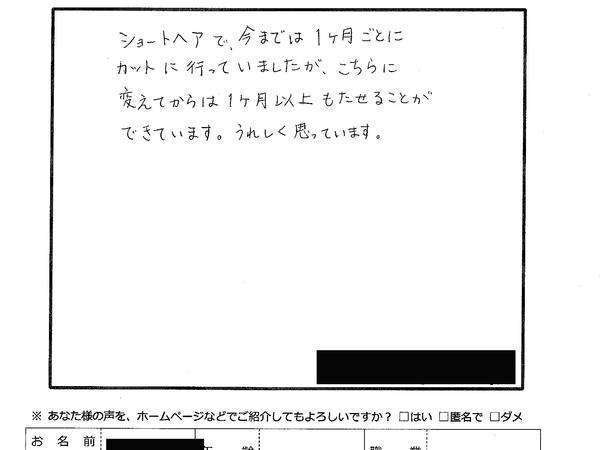 ショートヘアで、今までは1ヶ月ごとに
カットに行っていましたが、こちらに
変えてからは1ヶ月以上もたせることが
できています。うれしく思っています。
※ あなた様の声を、ホームページなどでご紹介してもよろしいですか？ □はい □匿名で □ダメ
お 名 前